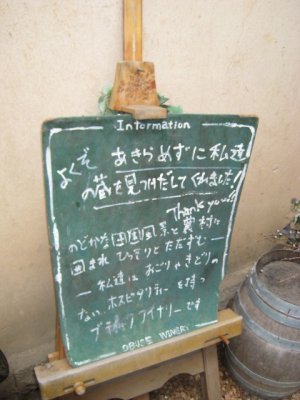 Information
よくぞ あきらめずに 私達
の蔵を見つけだしてくれました!
Thank you!!
のどかな田園風景と農村に
囲まれ ひっそりとただずむ
私達は おごりやきどりの
ない ホスピタリティーを持つ
ブティックワイナリーです
OBUSE WINERY